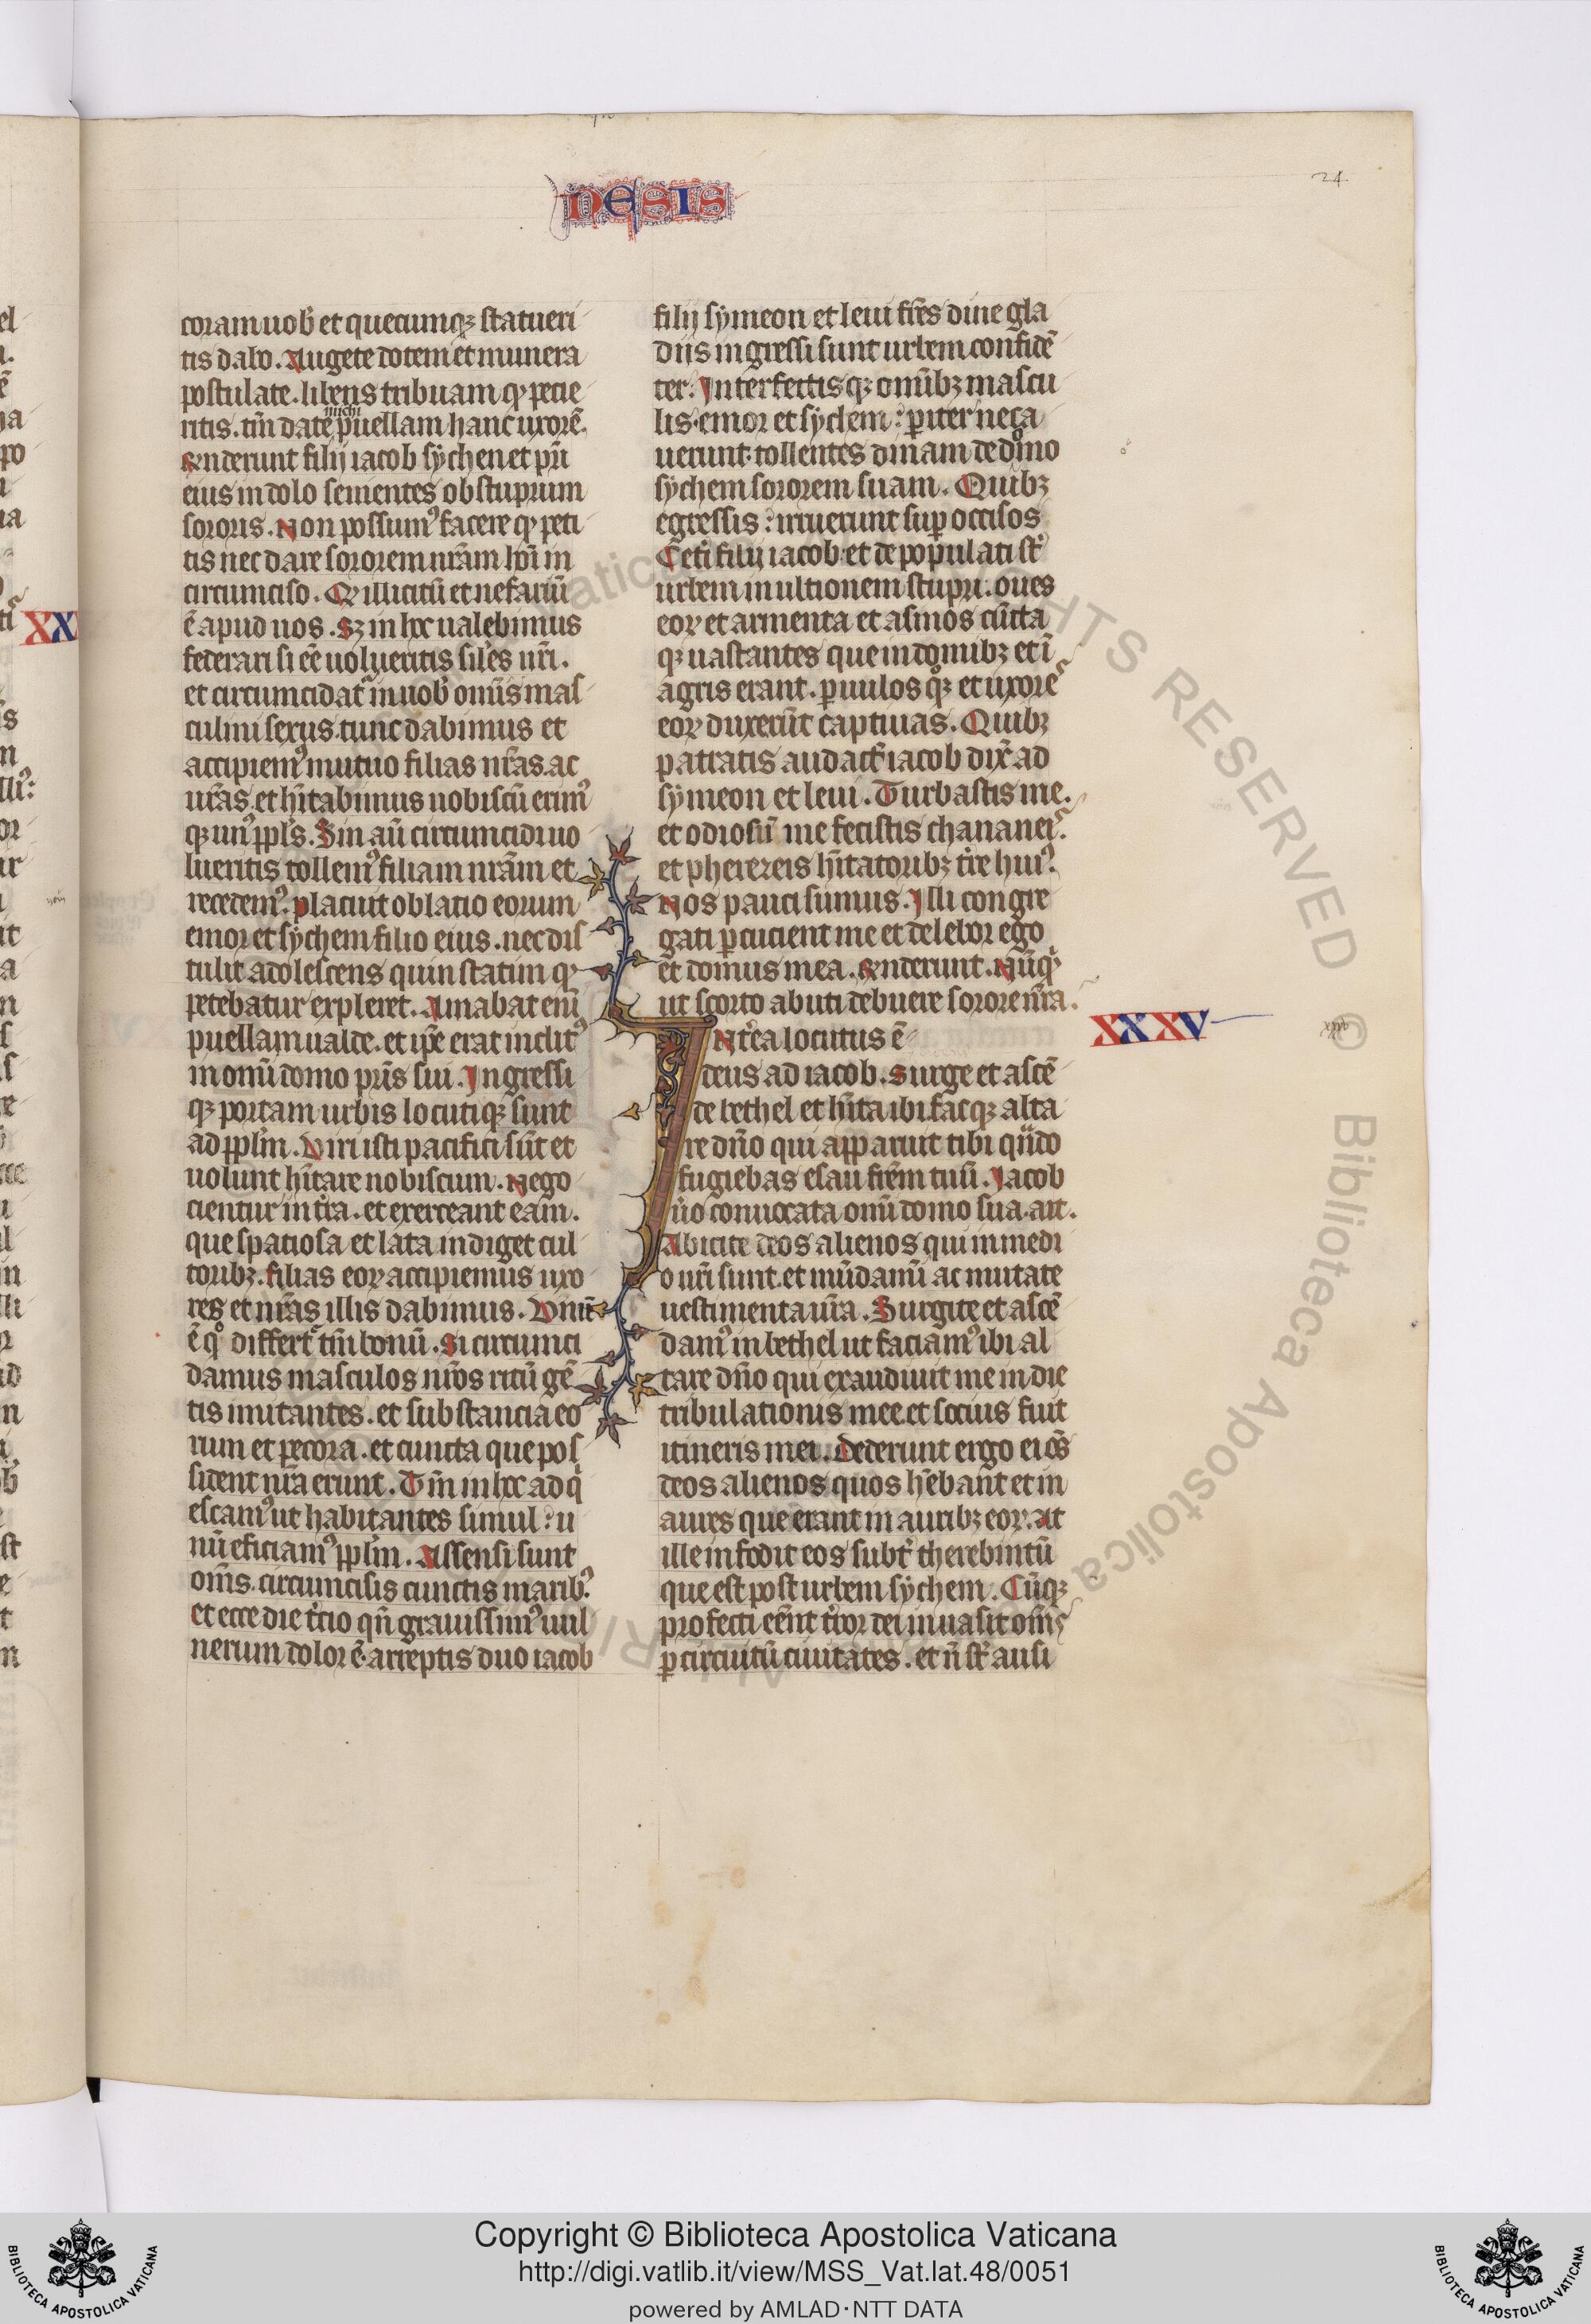 NESIS
24
coram uob̄ et quecumqꝫ statueri
tis dabo. Augete dotem et munera
postulate. libens tribuam qͥ petie
ritis. tm̄ date michi puellam hanc uxorē.
Rn̄derunt filij iacob sychen et pr̄i
eius in dolo seuientes ob stuprum
sororis. Non possumꝰ facere qͥ peti
tis nec dare sororem nr̄am hoī in
circumciso. Qͥ illicitū et nefariū
ē apud nos. Sꝫ in hoc ualebimus
federari si eē uolueritis siłes nr̄i.
et circumcidat᷑ in uob̄ omīs mas
culini sexus. tunc dabimus et
accipiemꝰ mutuo filias nr̄as. ac
ur̄as. et hītabimus uobiscū erimꝰ
qꝫ unꝰ ppl̄s. Sin aū circumcidi uo
lueritis tollemꝰ filiam nr̄am et
recedemꝰ. Placuit oblatio eorum
emor et sychem filio eius. nec dis
tulit adolescens quin statim qͥ
petebatur expleret. Amabat enī
puellam ualde. et ip̄e erat inclitꝰ
in omī domo pr̄is sui. Ingressi
qꝫ portam urbis locutiqꝫ sunt
ad ppl̄m. Viri isti pacifici sūt et
uolunt hītare nobiscum. Nego
cientur in tr̄a. et exerceant eam.
que spatiosa et lata indiget cul
toribꝫ. filias eoꝝ accipiemus uxo
res et nr̄as illis dabimus. Vnū
ē qͦ differt᷑ tm̄ bonū. Si circumci
damus masculos nr̄os ritū gē
tis imitantes. et substancia eo
rum et pecora. et cuncta que pos
sident nr̄a erunt. Tm̄ in hoc adq̄
escamꝰ ut habitantes simul? u
nū efficiamꝰ ppl̄m. Assensi sunt
om̄s. circumcisis cunctis maribꝰ.
et ecce die t̄cio qn̄ grauissimꝰ uul
nerum dolor ē. arreptis duo iacob
filij symeon et leui fr̄es dine gla
diis ingressi sunt urbem confidē
ter. Interfectisqꝫ omībꝫ mascu
lis. emor et sychem? pariter neca
uerunt. tollentes dinam de domo
sychem sororem suam. Quibꝫ
egressis? irruerunt sup occisos
Cet̄i filij iacob. et depopulati st̄
urbem in ultionem stupri. oues
eoꝝ et armenta et asinos cūcta
qꝫ uastantes que in domibꝫ et ī
agris erant. ꝑuulos qꝫ et uxores
eoꝝ duxerūt captiuas. Quibꝫ
patratis audact̄ iacob dix̄ ad
symeon et leui. Turbastis me.
et odiosū me fecistis chananeis.
et pherezeis hītatoribꝫ tr̄e huiꝰ.
Nos pauci sumus. Illi congre
gati ꝑcucient me et delebor ego
et domus mea. Rn̄derunt. Nūqͥ
ut scorto abuti debuere sorore nr̄a.
XXXV
INt̄ea locutus ē
deus ad iacob. Surge et ascē
de bethel et hīta ibi facqꝫ alta
re dn̄o qui apparuit tibi qn̄do
fugiebas esau fr̄em tuū. Iacob
u̇o conuocata omī domo sua. ait.
Abicite deos alienos qui in medi
o ur̄i sunt. et mūdamī ac mutate
uestimenta ur̄a. Surgite et ascē
damꝰ in bethel ut faciamꝰ ibi al
tare dn̄o qui exaudiuit me in die
tribulationis mee. et socius fuit
itineris mei. Dederunt ergo ei om̄s
deos alienos quos hēbant et in
aures que erant in auribꝫ eoꝝ. at
ille infodit eos subt̄ therebintū
que est post urbem sychem. Cūqꝫ
profecti eēnt t̄ror dei inuasit om̄s
ꝑ circuitū ciuitates. et n̄ st̄ ausi
XX
Copyright © Biblioteca Apostolica Vaticana
http://digi.vatlib.it/view/MSS_Vat.lat.48/0051
powered by AMLAD·NTT DATA
BIBLIOTECA APOSTOLICA VATICANA
BIBLIOTECA APOSTOLICA VATICANA